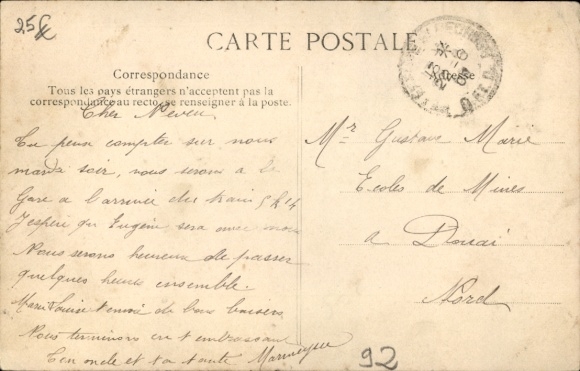 25 €
CARTE POSTALE
Correspondance
Adresse
Tous les pays étrangers n'acceptent pas la
correspondance au recto, se renseigner à la poste.
Cher Neveu
Tu peux compter sur nous
mardi soir, nous serons a la
Gare a l'arrivée du train 5 h 14
J'espère qu Eugène sera avec nous
Nous serons heureux de passer
quelques heures ensemble.
Marie Louise t'envoie de bons baisers
Nous terminons en t'embrassant
Ton oncle et ta tante
Mr Gustave Marie
Ecoles de Mines
a Douai
Nord
92